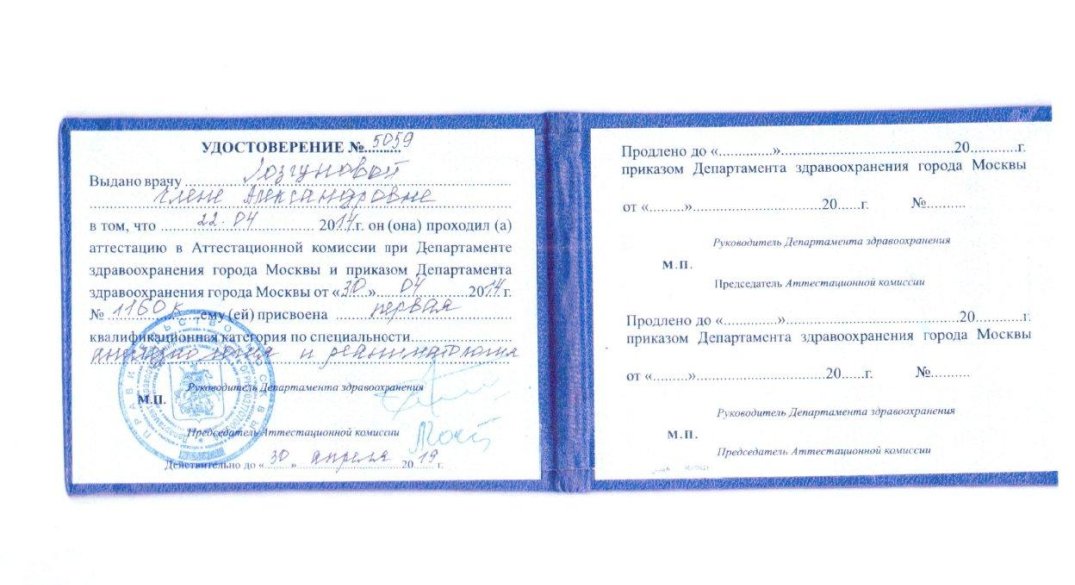 УДОСТОВЕРЕНИЕ № 5059
Выдано врачу Лозгуновой
Елене Александровне
в том, что 22.04 2014 г. он (она) проходил (а)
аттестацию в Аттестационной комиссии при Департаменте
здравоохранения города Москвы и приказом Департамента
здравоохранения города Москвы от «30» 04 2014 г.
№ 1160к ему (ей) присвоена первая
квалификационная категория по специальности
анестезиология и реаниматология
Руководитель Департамента здравоохранения
М.П.
Председатель Аттестационной комиссии
Действительно до «30» апреля 2019 г.
Продлено до «.............»...................................20............г.
приказом Департамента здравоохранения города Москвы
от «.........»...............................20......г. №..........
Руководитель Департамента здравоохранения
М.П.
Председатель Аттестационной комиссии
Продлено до «.............»...................................20............г.
приказом Департамента здравоохранения города Москвы
от «.........»...............................20......г. №..........
Руководитель Департамента здравоохранения
М.П.
Председатель Аттестационной комиссии